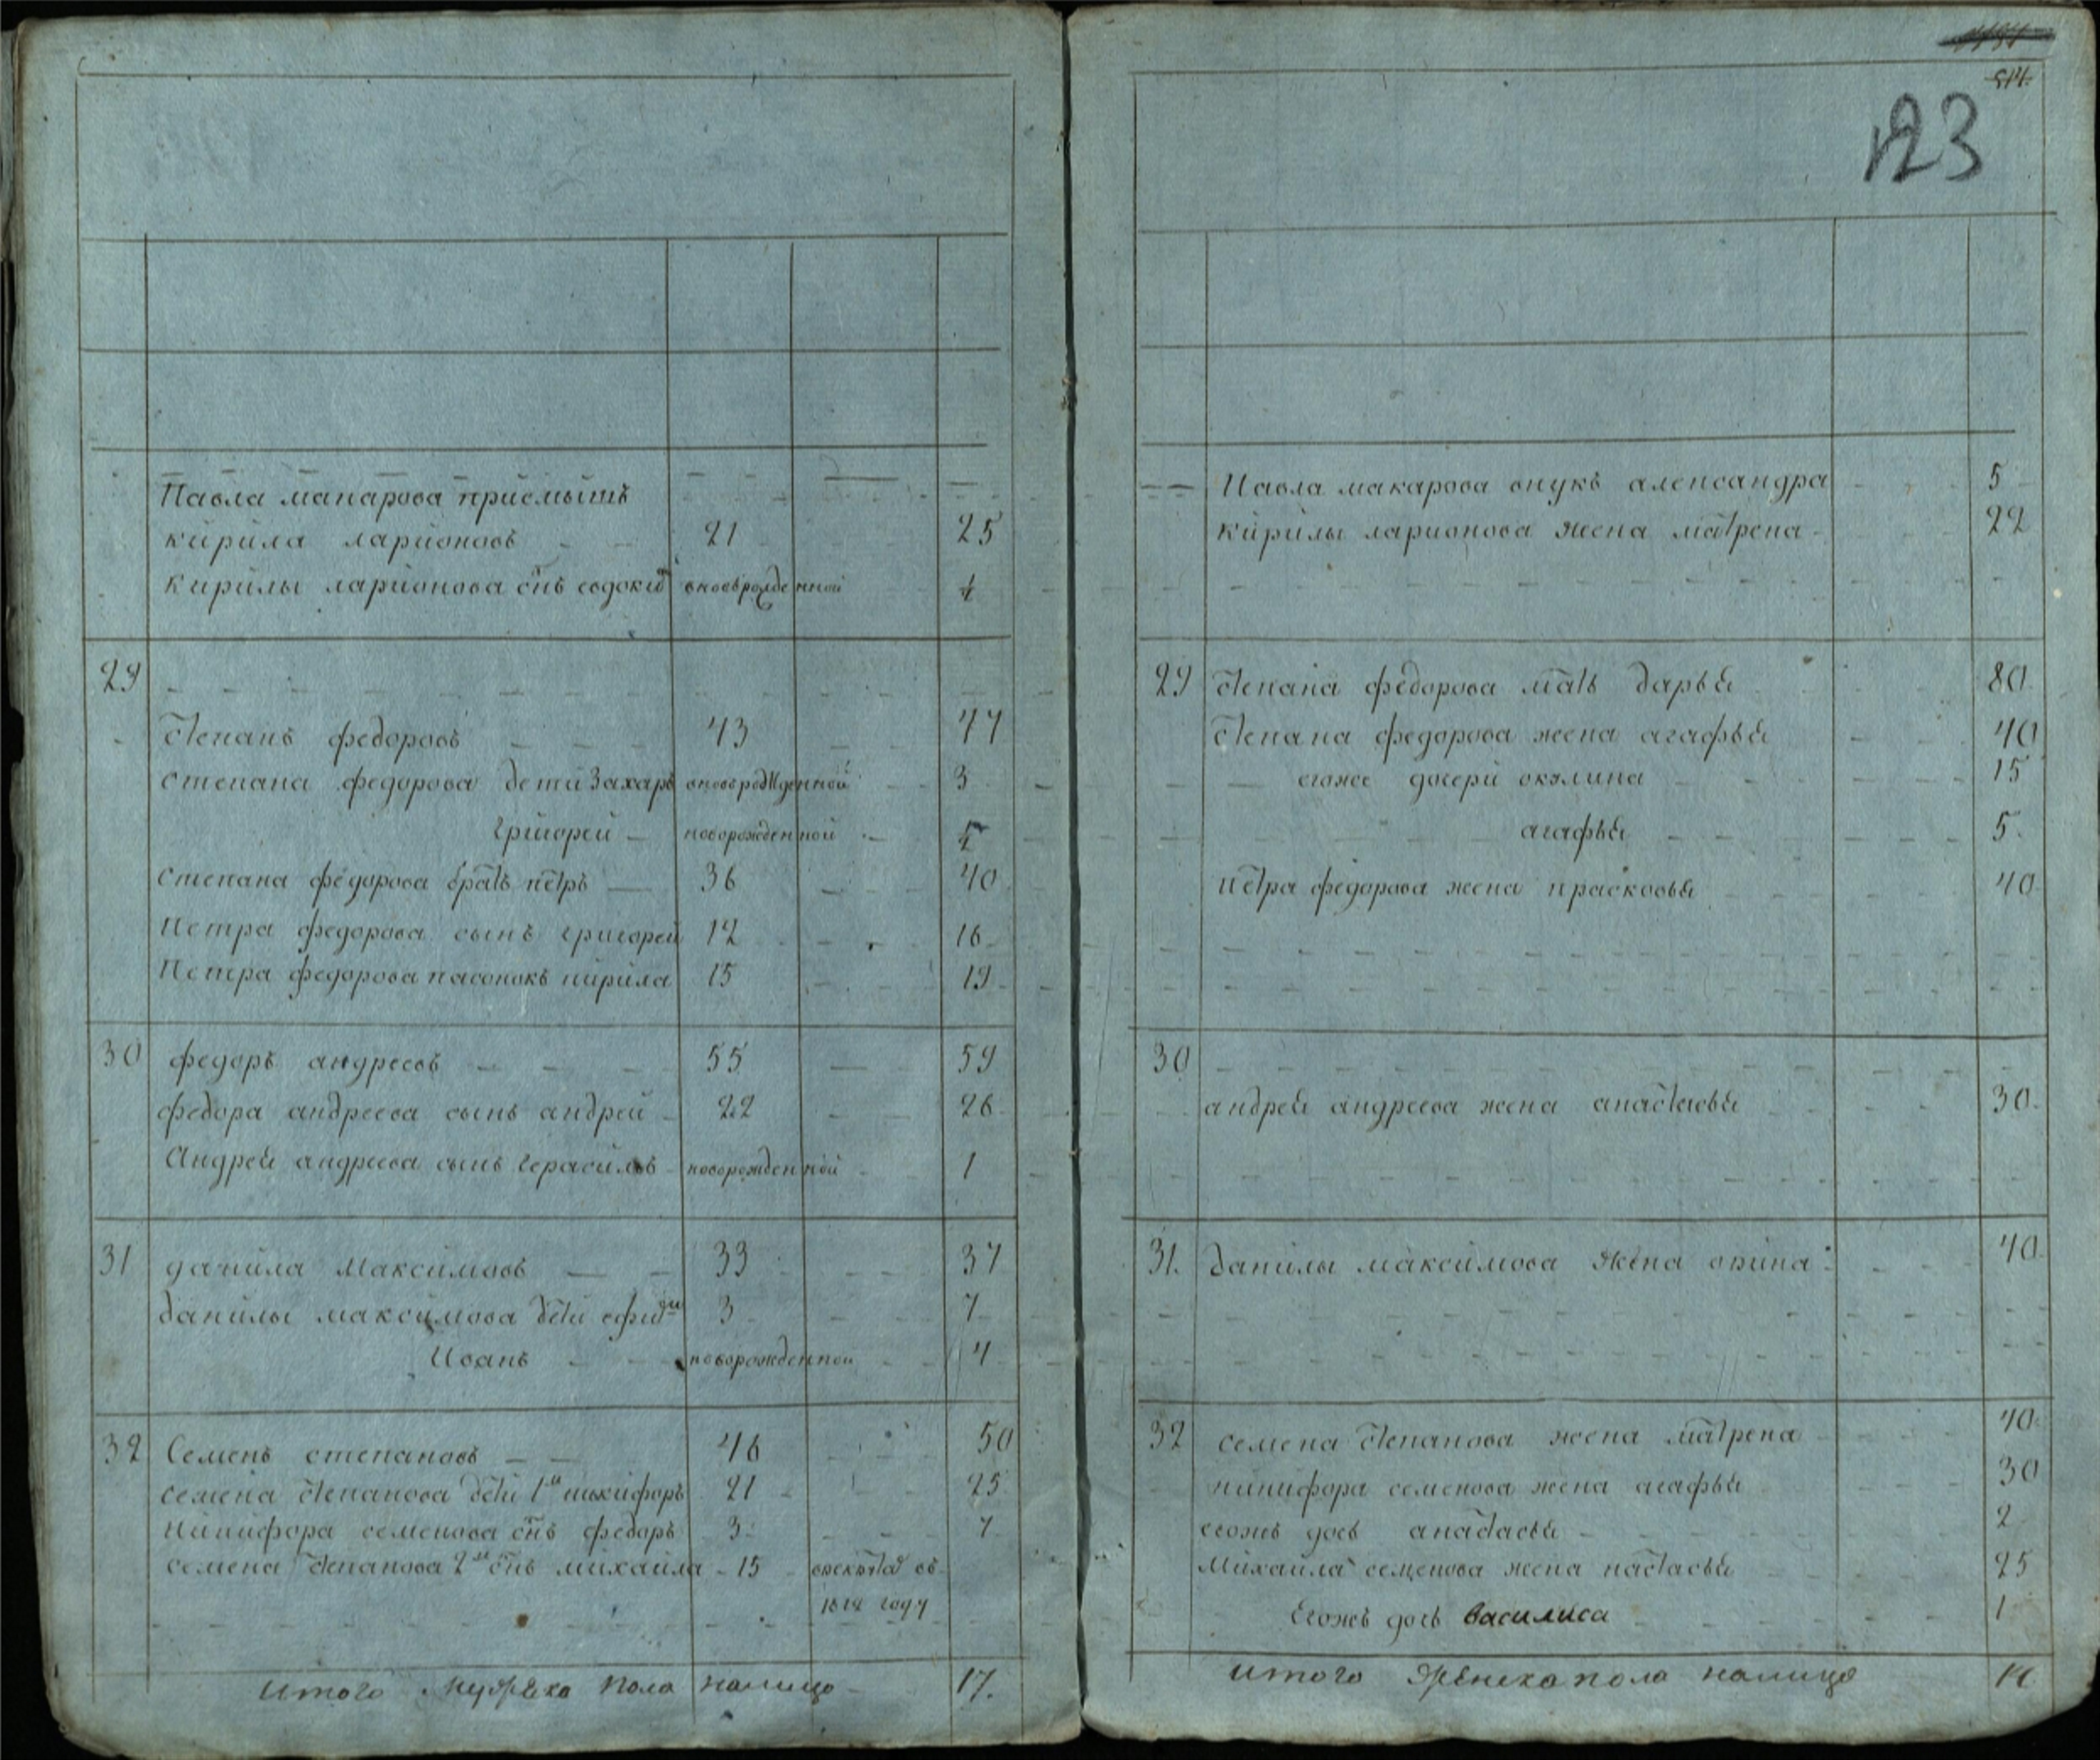 Павла макарова приемышъ
кирила ларионовъ 21 25
кирилы ларионова снъ евдоким вновьрожденной
29
степанъ федоровъ 43 47
степана федорова дети Захаръ вновьрожденной 3
григорей новорожденной
степана федорова братъ петръ 36 40
Петра федорова сынъ григорей 12 16
Петра федорова пасонокъ кирила 15 19
30 федоръ андреевъ 55 59
федора андреева сынъ андрей 22 26
Андрея андреева сынъ герасимъ новорожденной 1
31 данила максимовъ 33 37
данилы максимова дети 3 7
Иванъ новорожденной 4
32 Семенъ степановъ 46 50
семена степанова дети 1й никифоръ 21 25
никифора семенова снъ федоръ 3 7
семена степанова 2й снъ михаила 15 врекруты въ
1812 году
итого Мужеска пола налицо 17.
514.
123
Павла макарова внука александра 5
кирилы ларионова жена матрена 22
29 степана федорова мать дарья 80
степана федорова жена агафья 40
егоже дочери акулина 15
агафья 5.
петра федорова жена прасковья 40
30
андрея андреева жена анастасья 30.
31. данилы максимова жена 40.
32 семена степанова жена матрена 40.
никифора семенова жена агафья 30
егожъ дочь анастасья 2
михаила семенова жена настасья 25
Егожъ дочь василиса 1
итого женска пола налицо 14